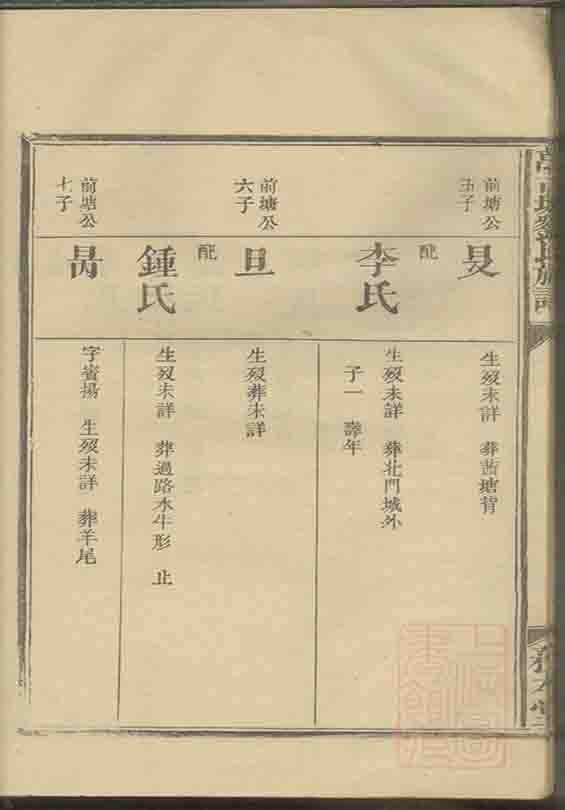 前塘公
五子
生歿未詳 葬茜塘背
配
李氏
生歿未詳 葬北門城外
子一 壽年
前塘公
六子
旦
生歿葬未詳
配
鍾氏
生歿未詳 葬過路水牛形 止
前塘公
七子
字賓揚 生歿未詳 葬羊尾